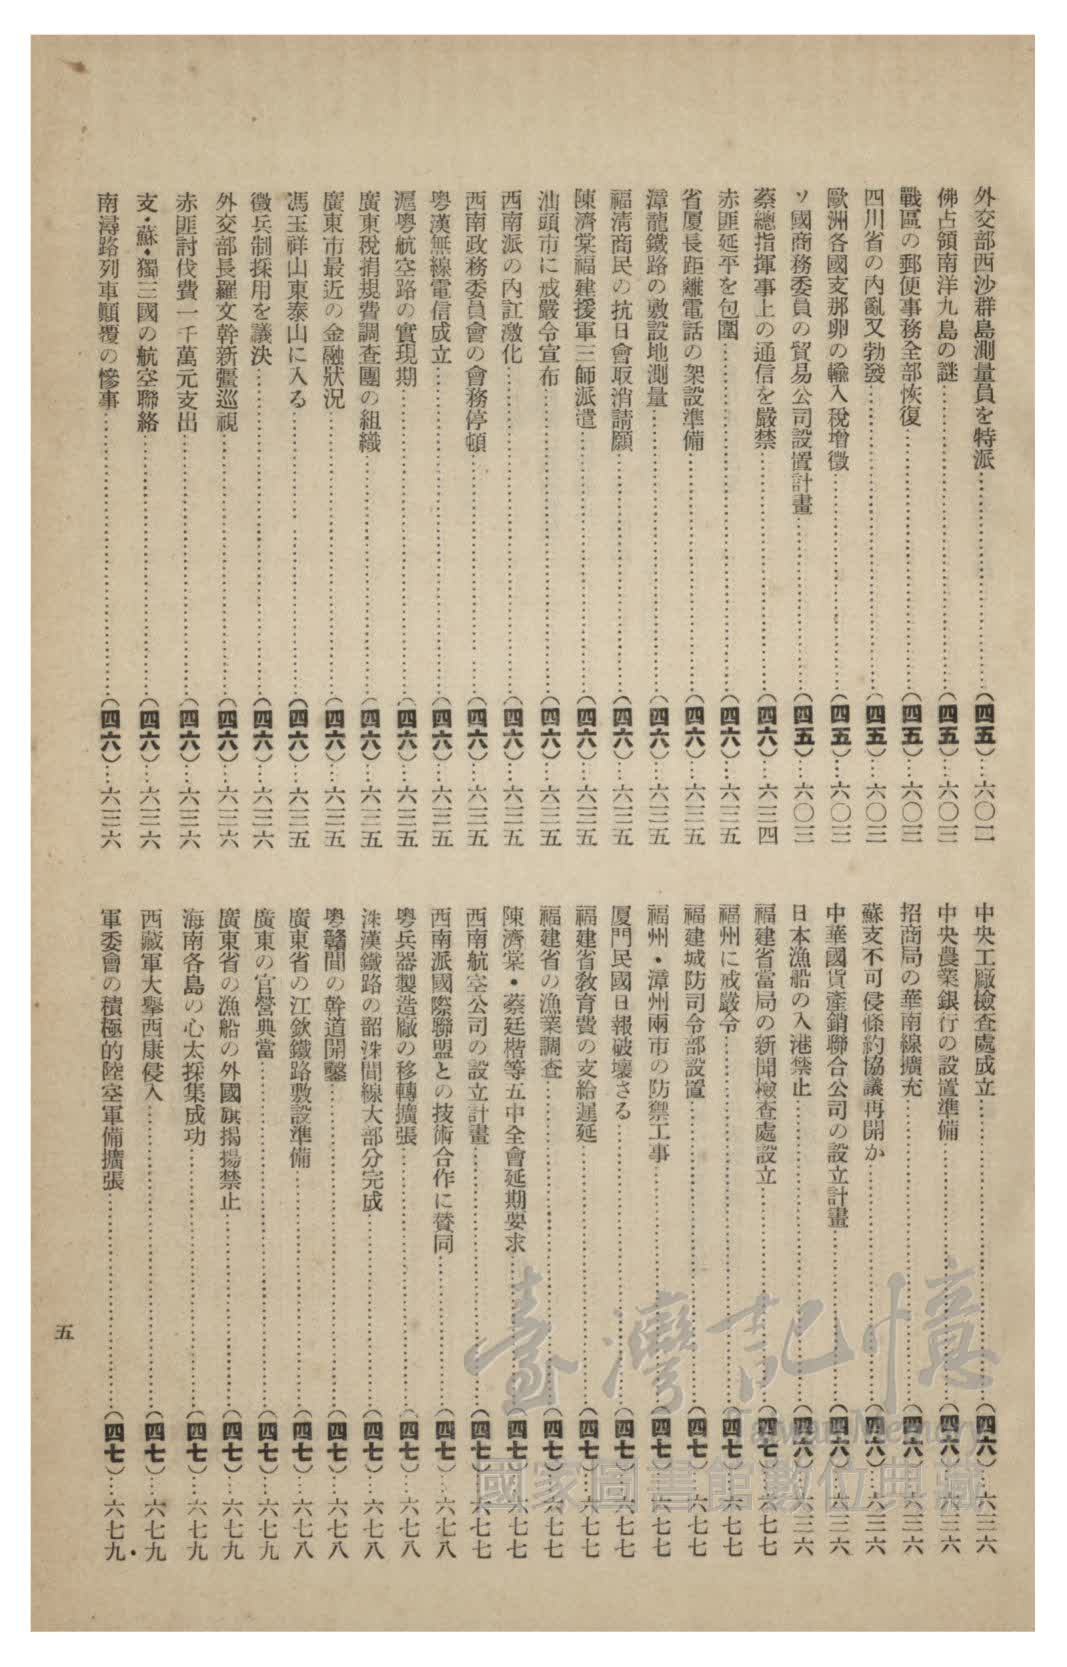 外交部西沙群島測量員を特派……（四五）…六〇二
佛占領南洋九島の謎……（四五）…六〇三
戰區の郵便事務全部恢復……（四五）…六〇三
四川省の內亂又勃發……（四五）…六〇三
歐洲各國支那卵の輸入稅增徵……（四五）…六〇三
ソ國商務委員の貿易公司設置計畫……（四五）…六〇三
蔡總指揮事上の通信を嚴禁……（四六）…六三四
赤匪延平を包圍……（四六）…六三五
省厦長距離電話の架設準備……（四六）…六三五
漳龍鐵路の敷設地測量……（四六）…六三五
福淸商民の抗日會取消請願……（四六）…六三五
陳濟棠福建援軍三師派遣……（四六）…六三五
汕頭市に戒嚴令宣布……（四六）…六三五
西南派の內訌激化……（四六）…六三五
西南政務委員會の會務停頓……（四六）…六三五
粤漢無線電信成立……（四六）…六三五
滬粤航空路の實現期……（四六）…六三五
廣東稅捐規費調査團の組織……（四六）…六三五
廣東市最近の金融狀況……（四六）…六三五
馮玉祥山東泰山に入る……（四六）…六三五
徵兵制採用を議決……（四六）…六三六
外交部長羅文幹新疆巡視……（四六）…六三六
赤匪討伐費一千萬元支出……（四六）…六三六
支・蘇・獨三國の航空聯絡……（四六）…六三六
南潯路列車顚覆の慘事……（四六）…六三六
中央工廠檢查處成立……（四六）…六三六
中央農業銀行の設置準備……（四六）…六三六
招商局の華南線擴充……（四六）…六三六
蘇支不可侵條約協議再開か……（四六）…六三六
中華國貨產銷聯合公司の設立計畫……（四六）…六三六
日本漁船の入港禁止……（四六）…六三六
福建省當局の新聞檢查處設立……（四七）…六七七
福州に戒嚴令……（四七）…六七七
福建城防司令部設置……（四七）…六七七
福州・漳州兩市の防禦工事……（四七）…六七七
厦門民國日報破壞さる……（四七）…六七七
福建省敎育費の支給遲延……（四七）…六七七
福建省の漁業調查……（四七）…六七七
陳濟棠・蔡廷楷等五中全會延期要求……（四七）…六七七
西南航空公司の設立計畫……（四七）…六七七
西南派國際聯盟との技術合作に贊同……（四七）…六七八
粤兵器製造廠の移轉擴張……（四七）…六七八
洙漢鐵路の韶洙間線大部分完成……（四七）…六七八
粤贛間の幹道開鑿……（四七）…六七八
廣東省の江欽鐵路敷設準備……（四七）…六七八
廣東の官營典當……（四七）…六七九
廣東省の漁船の外國旗揭揚禁止……（四七）…六七九
海南各島の心太採集成功……（四七）…六七九
西藏軍大擧西康侵入……（四七）…六七九
軍委會の積極的陸空軍備擴張……（四七）…六七九
五
臺灣記憶
Taiwan Memory
國家圖書館數位典藏